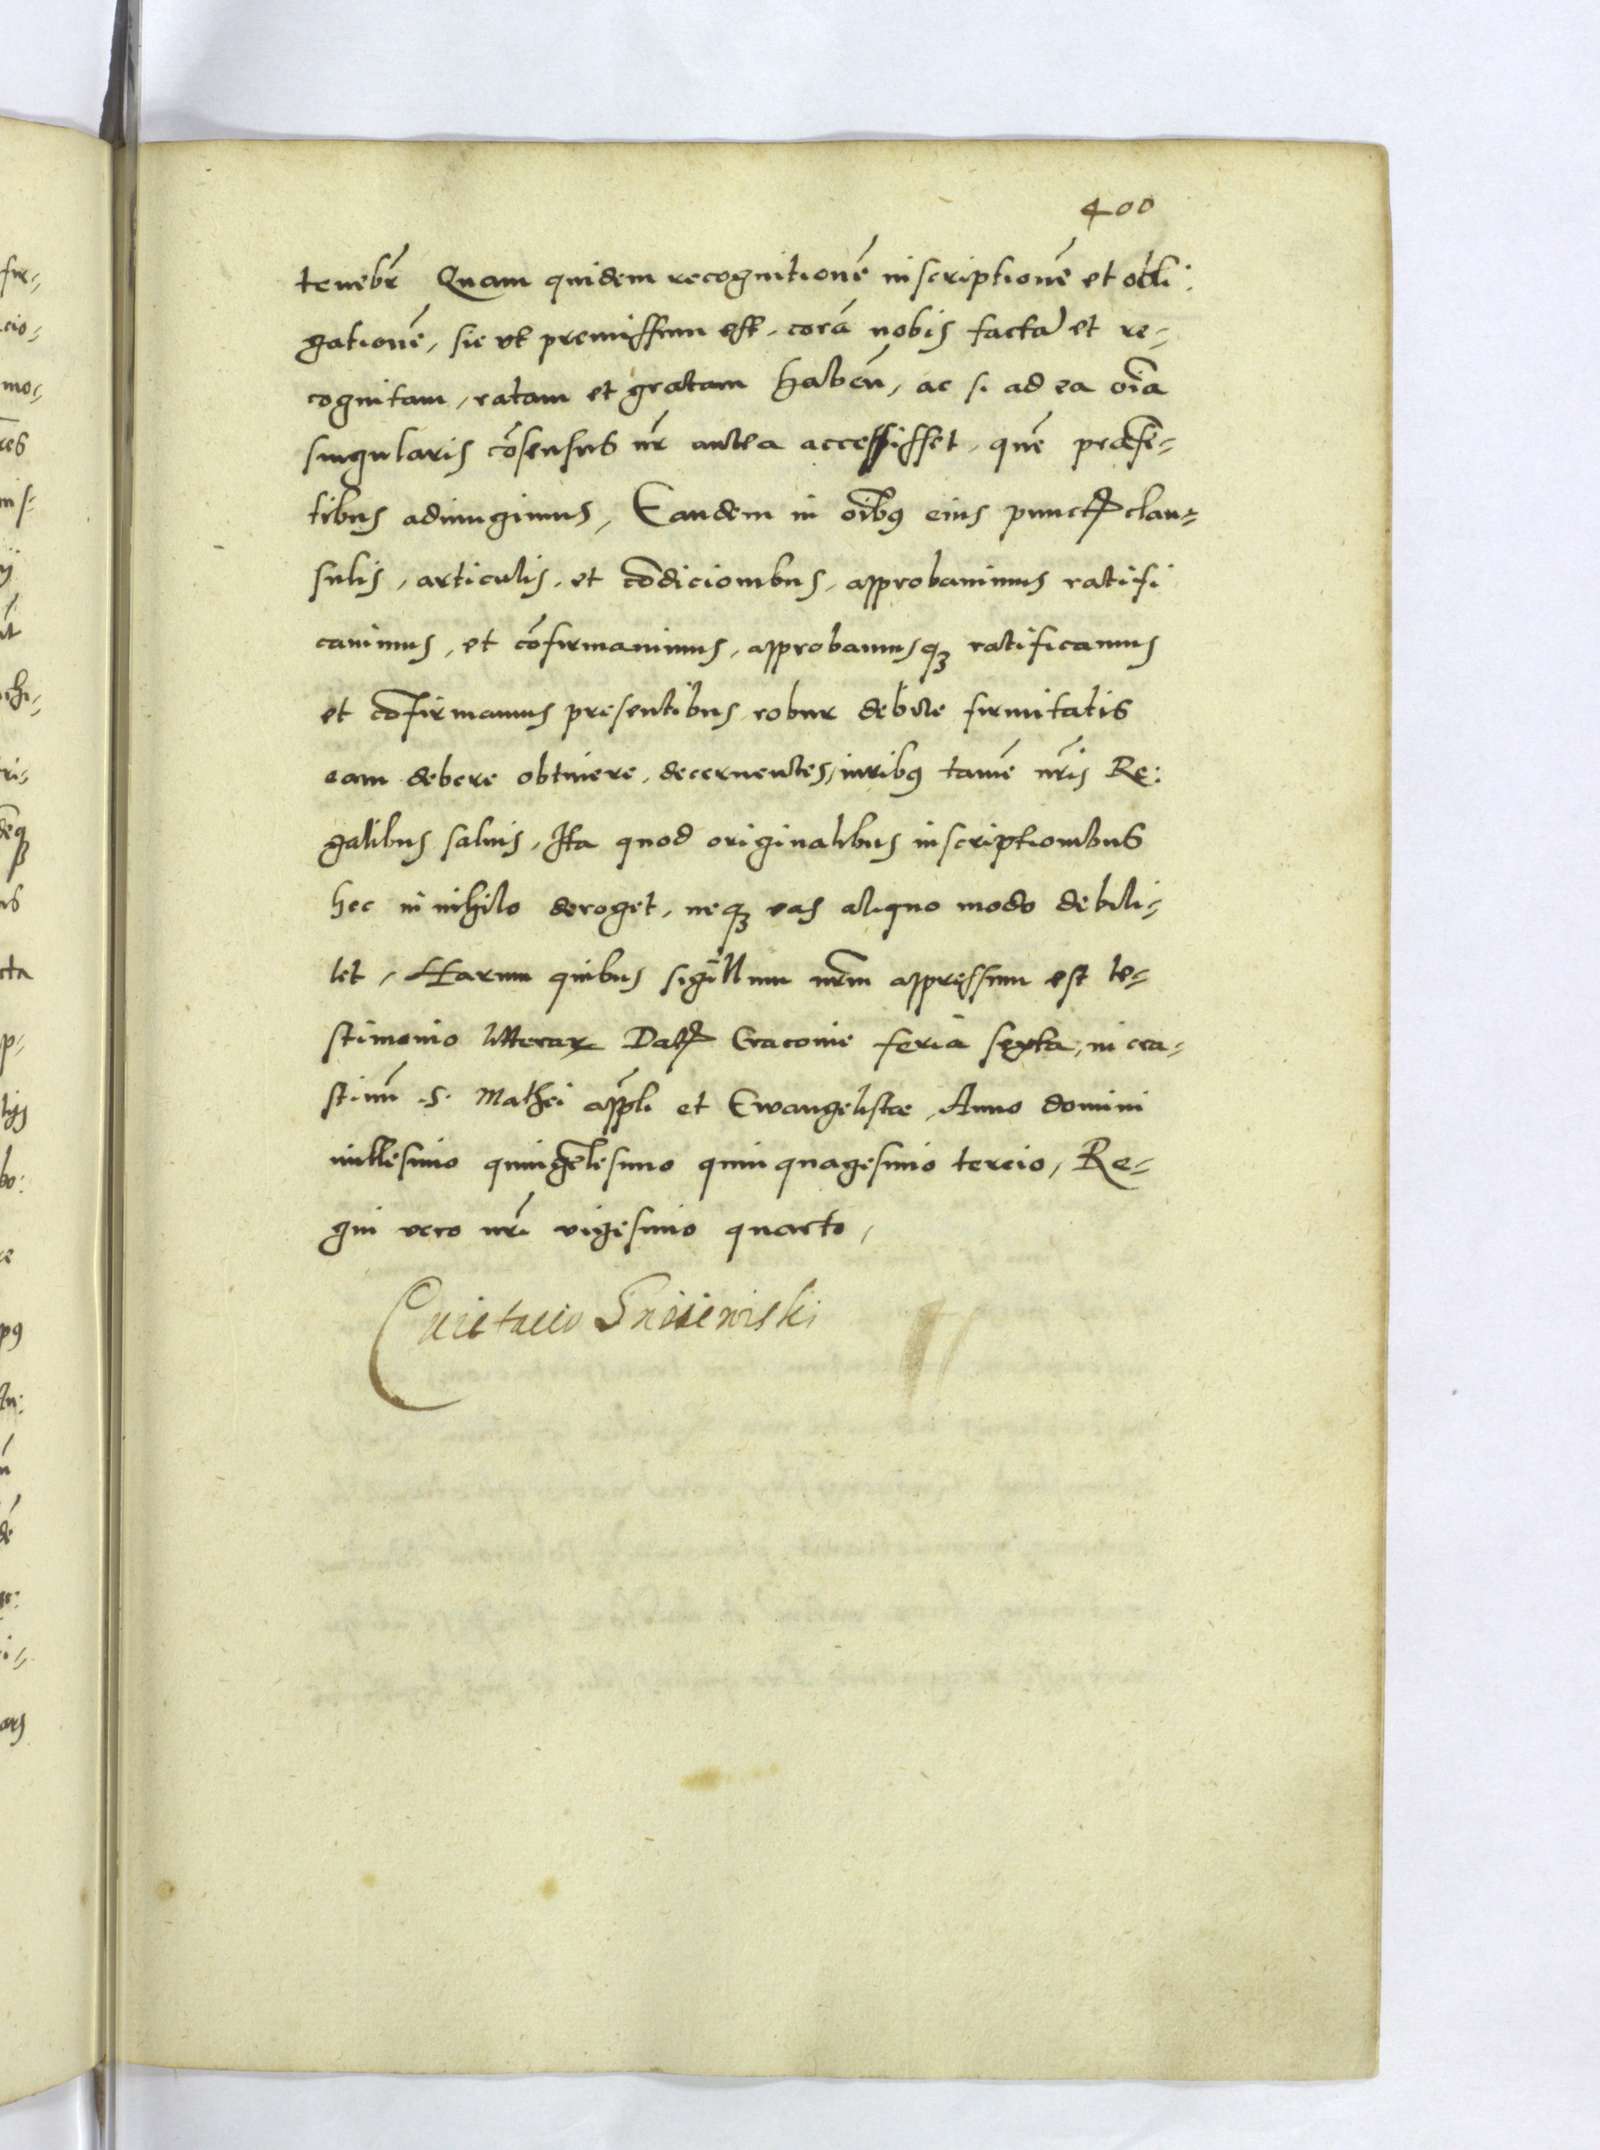 400
tenebr̃ Quam quidem recognitionẽ inscriptionẽ et obli:
gationẽ, sic vt premissum est, corã nobis facta et re-
cognitam, ratam et gratam habeñ, ac si ad ea oĩa
singularis cõsensus nr̃ antea accessisset, quẽ præsẽ-
tibus adiungimus, Eandem in oĩbꝯ eius punctꝭ clau-
sulis, articulis, et cõdicionibus, approbauimus ratifi
cauimus, et cõfirmauimus, approbamusqꝫ ratificamus
et cõfirmamus presentibus robur debite firmitatis
eam debere obtinere, decernentes, iuribꝯ tamẽ nr̃is Re:
galibus saluis, Ita quod originalibus inscriptionibus
hec in nihilo deroget, neqꝫ eas aliquo modo debili-
tet, Harum quibus sigillum nr̃m appressum est te-
stimonio litteraꝝ Datꝭ Cracovie feria sexta, in cra-
stinũ .S. Mathei apl̃i et Ewangelistæ, Anno domini
millesimo quingẽtesimo quinquagesimo tercio, Re-
gni vero nr̃i vigesimo quarto,